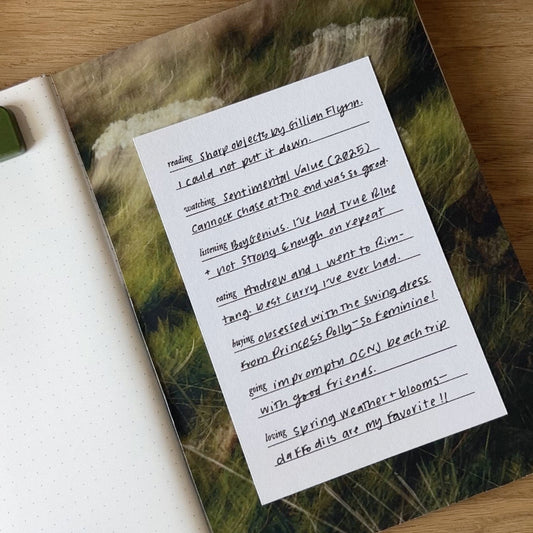 reading Sharp objects by Gillian Flynn.
I could not put it down.
watching Sentimental Value (2025)
Cannock Chase at the end was so good.
listening Boygenius. I've had True Blue
+ Not Strong Enough on repeat
eating Andrew and I went to Rim-
tang. best curry I've ever had.
buying obsessed with the swing dress
from Princess Polly - so feminine!
going impromptu OCNJ beach trip
with good friends.
loving spring weather + blooms -
daffodils are my favorite!!